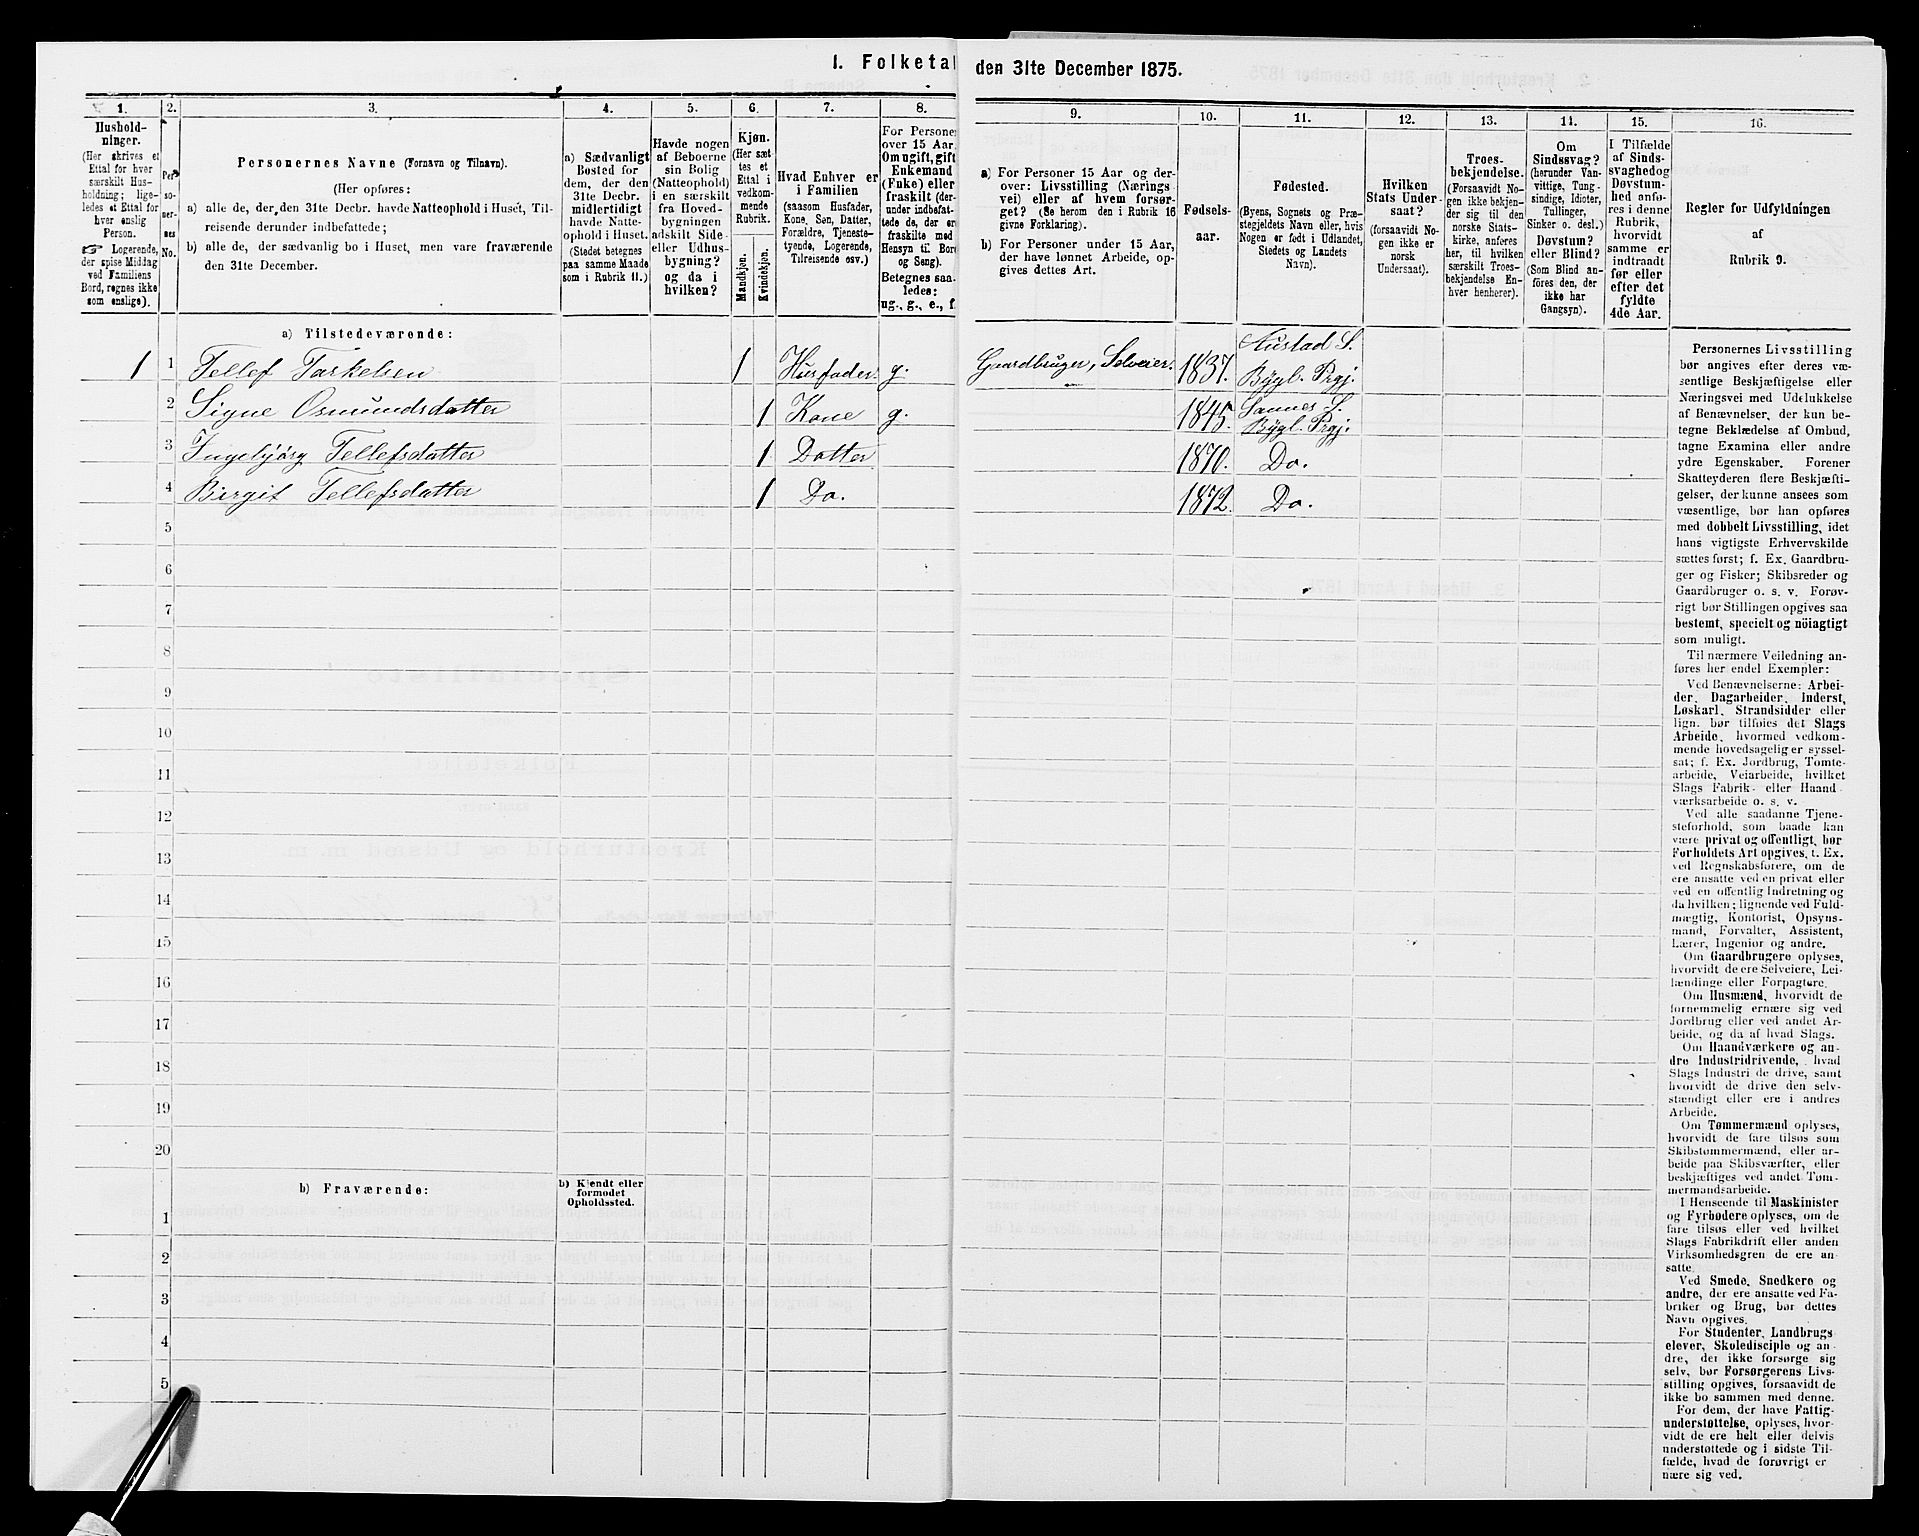 1. Folketal
den 31te December 1875.
1. 2. 3. 4. 5. 6. 7. 8. 9. 10. 11. 12. 13. 14. 15. 16.
Hushold-
ninger.
(Her skrives et
Ettal for hver
særskilt Hus-
holdning; lige-
ledes et Ettal for
hver enslig
Person.
☞ Logerende,
der spise Middag
ved Familiens
Bord, regnes ikke
som enslige).
Per-
so-
ner-
nes
No.
Personernes Navne (Fornavn og Tilnavn).
(Her opføres:
a) alle de, der den 31te Decbr. havde Natteophold i Huset, Til-
reisende derunder indbefattede;
b) alle de, der sædvanlig bo i Huset, men vare fraværende
den 31te December.
a) Sædvanligt
Bosted for
dem, der den
31te Decbr.
midlertidigt
havde Natte-
ophold i Huset.
(Stedet betegnes
paa samme Maade
som i Rubrik 11.)
Havde nogen
af Beboerne
sin Bolig
(Natteophold)
i en særskilt
fra Hoved-
bygningen
adskilt Side-
eller Udhus-
bygning?
og da i
hvilken?
Kjøn.
(Her sæt-
tes et
Ettal i
vedkom-
mende
Rubrik.
Mandkjøn.
Kvindekjøn.
Hvad Enhver er
i Familien
(saasom Husfader,
Kone, Søn, Datter,
Forældre, Tjeneste-
tyende, Logerende,
Tilreisende osv.)
For Personer
over 15 Aar:
Om ugift, gift,
Enkemand
(Enke) eller
fraskilt (der-
under indbefat-
tede de, der ere
fraskilte med
Hensyn til Bord
og Seng).
Betegnes saa-
ledes:
ug., g., e., f.
a) For Personer 15 Aar og der-
over: Livsstilling (Nærings-
vei) eller af hvem forsør-
get? (Se herom den i Rubrik 16
givne Forklaring).
b) For Personer under 15 Aar,
der have lønnet Arbeide, op-
gives dettes Art.
Fødsels-
aar.
Fødested.
(Byens, Sognets og Præ-
stegjeldets Navn eller, hvis
Nogen er født i Udlandet,
Stedets og Landets
Navn).
Hvilken
Stats Under-
saat?
(forsaavidt No-
gen ikke er
norsk
Undersaat).
Troes-
bekjendelse.
(Forsaavidt No-
gen ikke bekjen-
der sig til den
norske Stats-
kirke, anføres
her, til hvilken
særskilt Troes-
bekjendelse En-
hver henhører).
Om
Sindssvag?
(herunder Van-
vittige, Tung-
sindige, Idioter,
Tullinger,
Sinker o. desl.)
Døvstum?
eller Blind?
(Som Blind an-
føres den, der
ikke har
Gangsyn).
I Tilfælde
af Sinds-
svaghed og
Døvstum-
hed anfø-
res i denne
Rubrik,
hvorvidt
samme er
indtraadt
før eller
efter det
fyldte
4de Aar.
Regler for Udfyldningen
af
Rubrik 9.
a) Tilstedeværende:
1 1 Tellef Tarkelsen 1 Husfader. g. Gaardbruger, Selveier. 1837. Austad S. Bygl. Prgj.
2 Signe Osmundsdatter 1 Kone g. 1845. Sannes S. Bygl. Prgj.
3 Ingebjørg Tellefsdatter 1 Datter 1870. Do.
4 Birgit Tellefsdatter 1 Do. 1872. Do.
5
6
7
8
9
10
11
12
13
14
15
16
17
18
19
20
b) Fraværende:
b) Kjendt eller
formodet
Opholdssted.
1
2
3
4
5
Personernes Livsstilling
bør angives efter deres væ-
sentlige Beskjæftigelse eller
Næringsvei med Udelukkelse
af Benævnelser, der kun be-
tegne Beklædelse af Ombud,
tagne Examina eller andre
ydre Egenskaber. Forener
Skatteyderen flere Beskjæfti-
gelser, der kunne ansees som
væsentlige, bør han opføres
med dobbelt Livsstilling, idet
hans vigtigste Erhvervskilde
sættes først; f. Ex. Gaardbru-
ger og Fisker; Skibsreder og
Gaardbruger o. s. v. Forøv-
rigt bør Stillingen opgives saa
bestemt, specielt og nöiagtigt
som muligt.
Til nærmere Veiledning an-
føres her endel Exempler:
Ved Benævnelserne: Arbei-
der, Dagarbeider, Inderst,
Løskarl, Strandsidder eller
lign. bør tilføies det Slags
Arbeide, hvormed vedkom-
mende hovedsagelig er syssel-
sat; f. Ex. Jordbrug, Tomte-
arbeide, Veiarbeide, hvilket
Slags Fabrik- eller Haand-
værksarbeide o. s. v.
Ved alle saadanne Tjene-
steforhold, som baade kan
være privat og offentligt, bør
Forholdets Art opgives, t. Ex.
ved Regnskabsførere, om de
ere ansatte ved en privat eller
ved en offentlig Indretning og
da hvilken; lignende ved Fuld-
mægtig, Kontorist, Opsyns-
mand, Forvalter, Assistent,
Lærer, Ingeniør og andre.
Om Gaardbrugere oplyses,
hvorvidt de ere Selveiere, Lei-
lændinge eller Forpagtere.
Om Husmænd, hvorvidt de
fornemmelig ernære sig ved
Jordbrug eller ved andet Ar-
beide, og da af hvad Slags.
Om Haandværkere og an-
dre Industridrivende, hvad
Slags Industri de drive, samt
hvorvidt de drive den selv-
stændigt eller ere i andres
Arbeide.
Om Tømmermænd oplyses,
hvorvidt de fare tilsøs som
Skibstømmermænd, eller ar-
beide paa Skibsværfter, eller
beskjæftiges ved andet Tøm-
mermandsarbeide.
I Henseende til Maskinister
og Fyrbødere oplyses, om de
fare tilsøs eller ved hvilket
Slags Fabrikdrift eller anden
Virksomhedsgren de ere an-
satte.
Ved Smede, Snedkere og
andre, der ere ansatte ved Fa-
briker og Brug, bør dettes
Navn opgives.
For Studenter, Landbrugs-
elever, Skoledisciple og an-
dre, der ikke forsørge sig
selv, bør Forsørgerens Livs-
stilling opgives, forsaavidt de
ikke bo sammen med denne.
For dem, der have Fattig-
understøttelse, oplyses, hvor-
vidt de ere helt eller delvis
understøttede og i sidste Til-
fælde, hvad de forøvrigt er
nære sig ved.